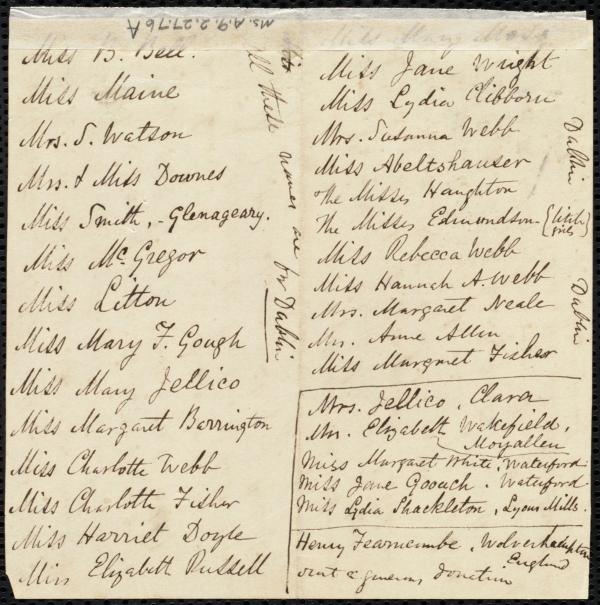 Ms.A.9.2.27.76A
Miss B. Bell.
Miss Maine
Mrs. S. Watson
Mrs. & Miss Downes
Miss Smith, - Glenageary.
Miss McGregor
Miss Litton
Miss Mary F. Gough
Miss Mary Jellico
Miss Margaret Barrington
Miss Charlotte Webb
Miss Charlotte Fisher
Miss Harriet Doyle
Miss Elizabeth Russell
All these names are for Dublin
Miss Mary
Miss Jane Wright
Miss Lydia Clibborn
Mrs. Susanna Webb
Miss Abeltshauser
The Misses Haughton
The Misses Edmundson - {little girls}
Miss Rebecca Webb
Miss Hannah A. Webb
Mrs. Margaret Neale
Mrs. Anne Allen
Miss Margaret Fisher
Dublin
Dublin
Mrs. Jellico, Clara
Mrs. Elizabeth Wakefield,
Moyallen
Miss Margaret White, Waterford
Miss Jane Goouch. Waterford
Miss Lydia Shackleton, Lyons Mills.
Henry Fearncombe, Wolverhampton
England
sent a generous donation